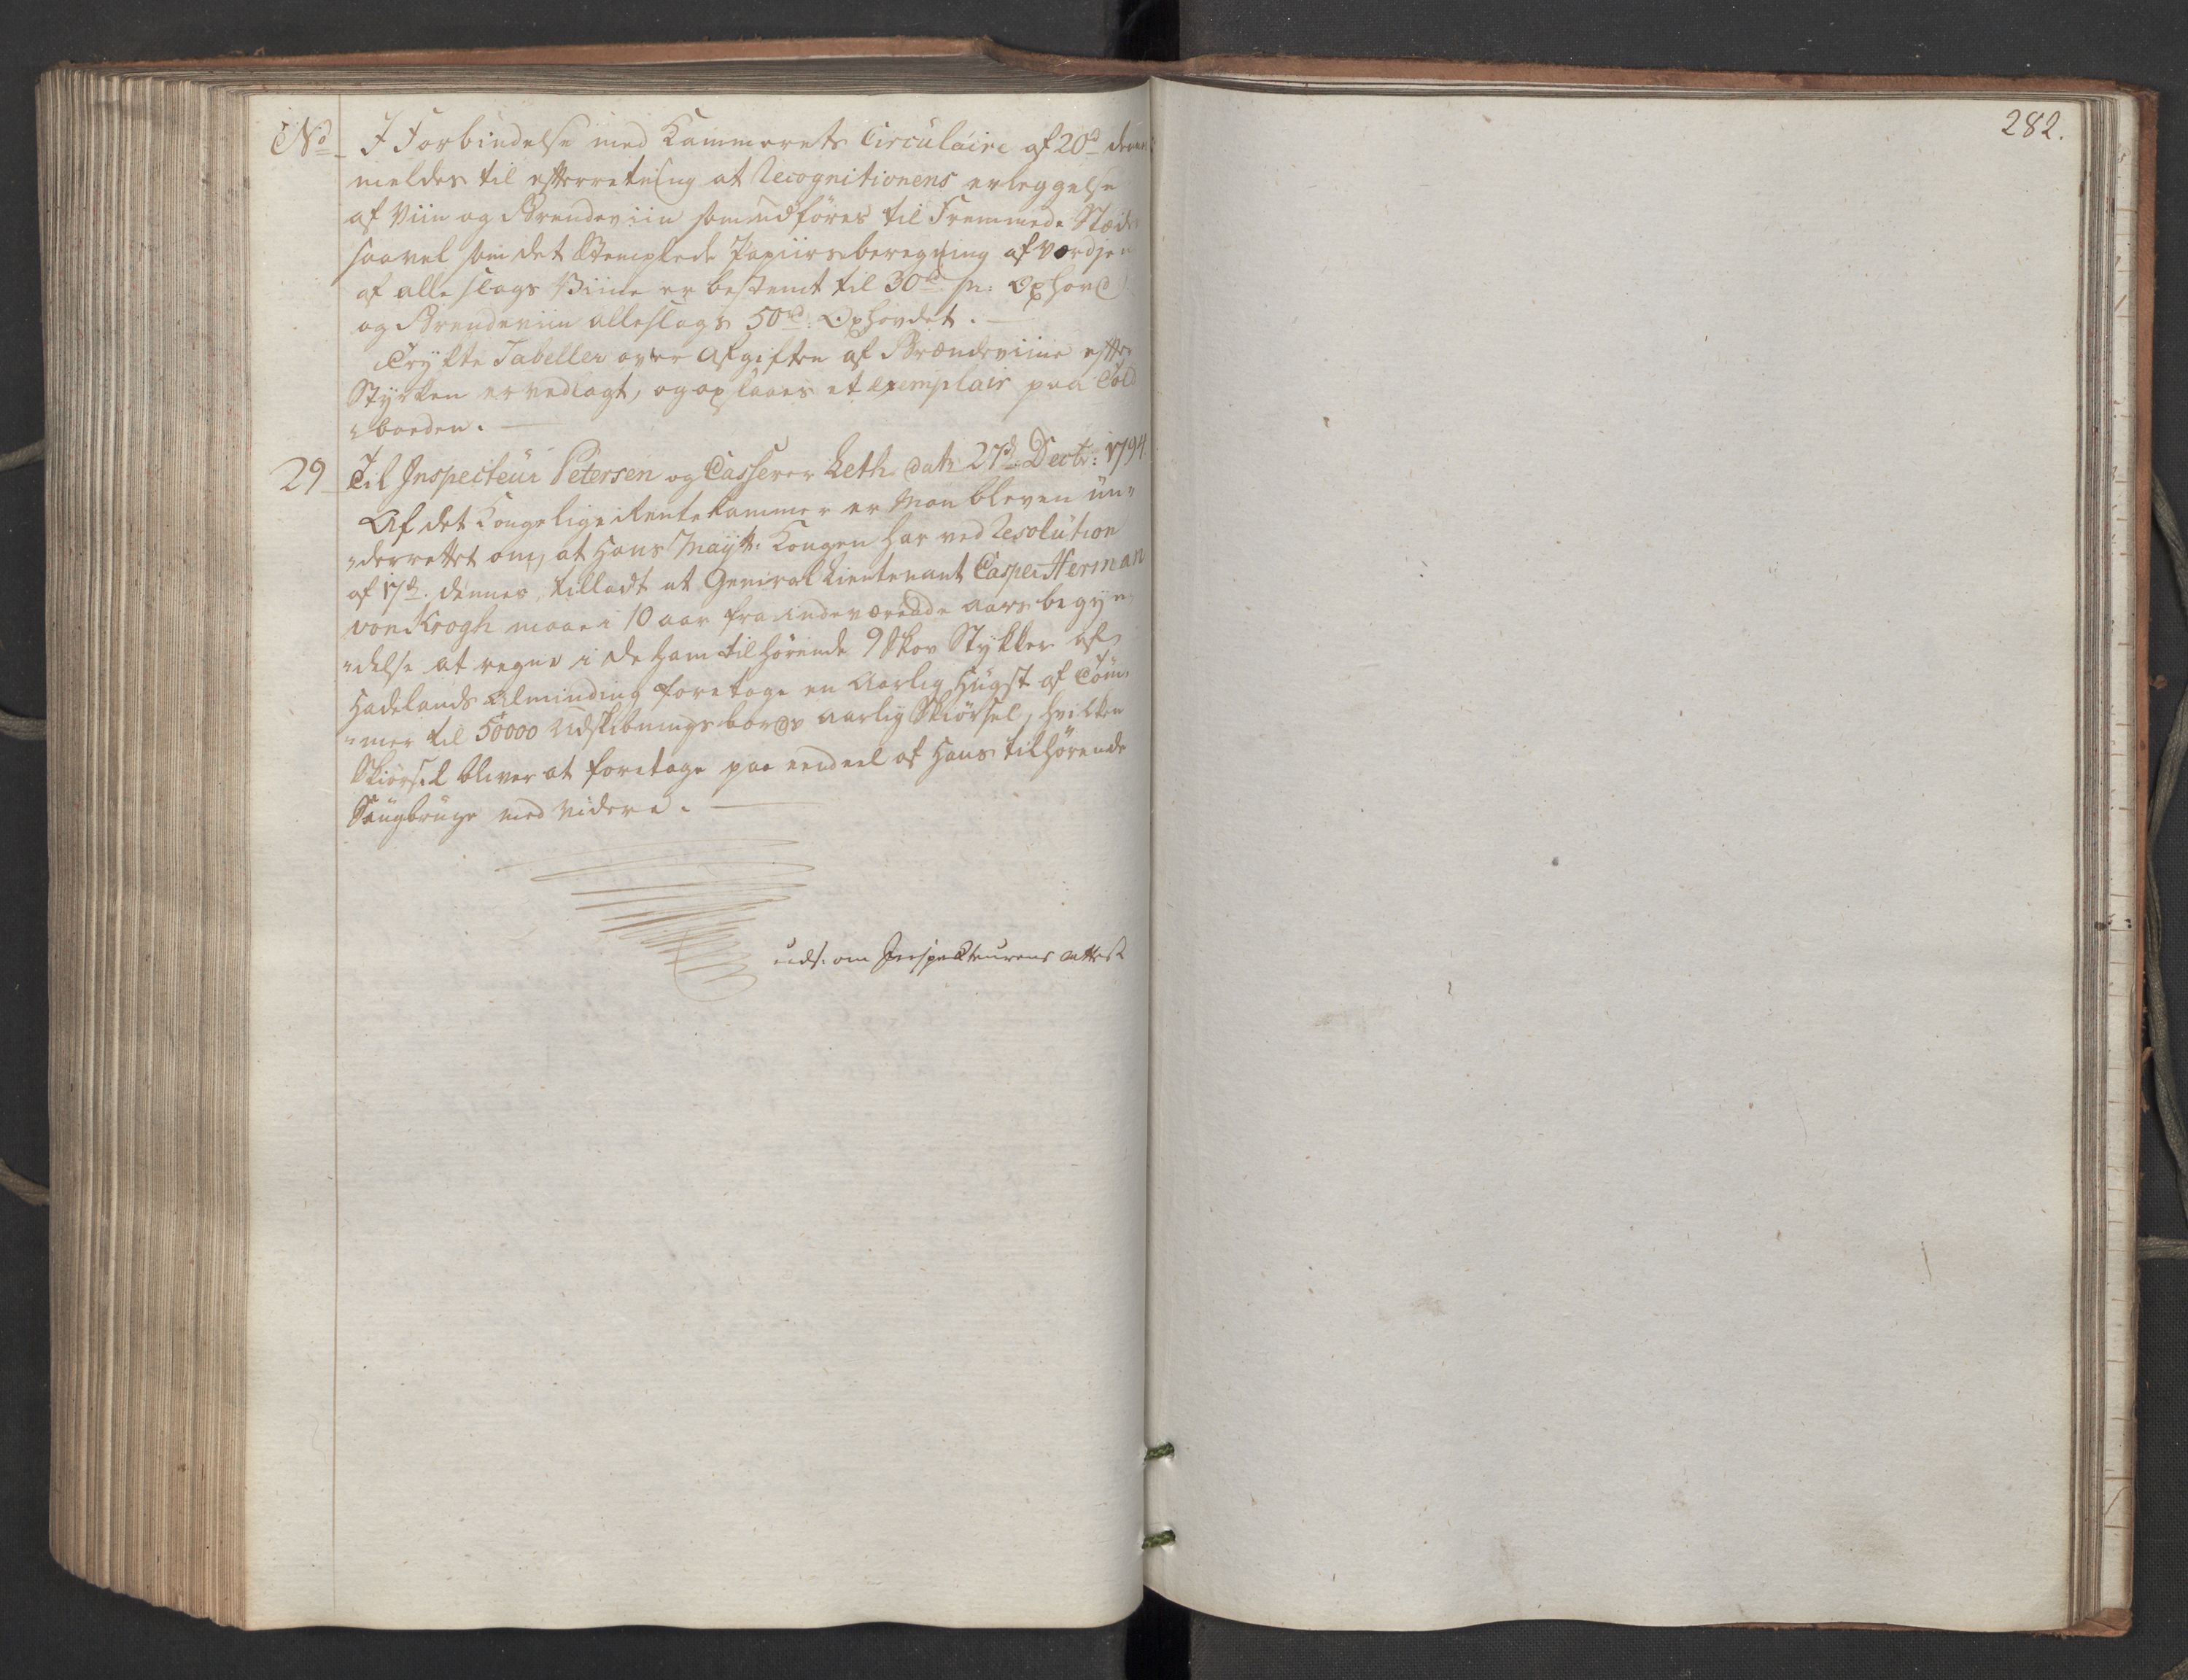 No I Forbindelse med Kammerets Circulaire af 20d dennes
meldes til efterretning at Recognitionens erleggelse
af Viin og Brendeviin som udføres til Fremmede Stæder
saavel som det Stemplede Papiirs beregning af Værdjen
af alle slags Viine er bestemt til 30rd pr: Oxhovd
og Brendeviin alleslags 50rd: Oxhovdet.
Trykte Tabeller over Afgiften af Brændeviine efter
Styrken er vedlagt, og opslaaes et Exemplair paa Told
boeden.
29 Til Inspecteur Petersen og Casserer Leth dat: 27d Decbr: 1794
Af det Kongelige Rentekammer er Man bleven un„
„derrettet om, at Hans Mayt: Kongen har ved Resolution
af 17d. dennes, tilladt at General Lieutenant Casper Herman
von Krogh maae i 10 aar fra indeværende aars begyn„
„delse at regne i de ham tilhørende 9 Skov Stykker af
Hadelands Alminding foretage en Aarlig Hugst af Töm„
„mer til 50000 Udskibningsbords aarlig Skiørsel, hvilken
Skiørsel bliver at foretage paa eendeel af Hans tilhørende
Saugbruge med videre.
uds. om Inspekteurens attest
282.